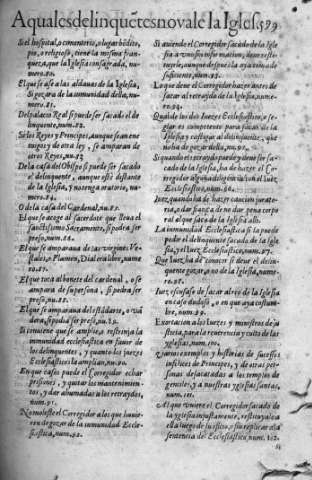 A quales delinquẽtes no vale la Igles. 599
Si el hospital, o cementerio, o lugar bẽdito,
pio, o religioso, tiene la misma fran-
queza, que la Iglesia consagrada, nu-
mero.20.
El que se ase a las aldauas de la Iglesia,
si gozara de la inmunidad della, nu-
mero.21.
Del palacio Real si puede ser sacado el de
linquente, num.22.
Si los Reyes y Principes, aunque sean ene
migos y de otra ley, se amparan de
otros Reyes, nu.23
De la casa del Obispo si puede ser sacado
el delinquente, aunque este distante
de la Iglesia, y no tenga oratorio, nu-
mero.24.
O de la casa del Cardenal, nu.25.
El que se acoge al sacerdote que lleua el
santissimo Sacramento, si podra ser
preso, num.26.
El que se amparaua de las virgines Ve-
stales, o Flamen, Dial era libre, nume
ro.27.
El que toca al bonete del cardenal, o se
ampara de su persona, si podra ser
preso, nu.28.
El que se ampara del estãdarte, o vã
dera, si podra ser preso, nu.29.
Si conuiene que se amplie, o restrinja la
inmunidad ecclesiastica en fauor de
los delinquentes, y quanto los juezes
Ecclesiasticos la amplian, nu.90.
En que casos puede el Corregidor echar
prisiones, y quitar los mantenimien-
tos, y dar ahumadas a los retraydos,
num.91.
No moleste el Corregidor a los que huuie-
ren de gozar de la inmunidad Eccle-
siastica, num.92.
Si auiendo el Corregidor sacado de la Igle
sia a vno sin informacion, deue resti-
tuyrle, aunque despues la aya
suficiente, num.93.
Lo que deue el Corregidor hazer antes de
sacar al retraydo de la Iglesia, nume-
ro.94.
Qual de los dos Iuezes Ecclesiastico, o se-
glar es competente para sacar de la
Iglesia y castigar al delinquente, que
no ha de gozar della, nu.95.
Si quando el retraydo puede y deue ser sa-
cado de la Iglesia, ha de hazer el Cor-
regidor alguna diligencia con el Iuez
Ecclesiastico, num.96.
Iuez, quando ha de hazer caucion jurato-
ria, o dar fiança de no dar pena corpo
ral al que saca de la Iglesia, ibi.
La inmunidad Ecclesiastica si la puede
pedir el delinquente sacado de la Igle
sia, y el Iuez Ecclesiastico, num.97.
Que Iuez, ha de conocer si deue el delin-
quente gozar, o no de la Iglesia, nume-
ro.98.
Iuez, escusese de sacar al reo de la Iglesia
en caso dudoso, o en que aya costum-
bre, num.99.
Exortacion a los Iuezes y ministros de ju
sticia, para la reuerencia y culto de las
yglesias, num.100.
Varios exemplos y historias de sucessos
infelices de Principes, y de otras per-
sonas desacatadas a los templos de
gentiles, y a nuestras yglesias santas,
num.101.
Al que vuiere el Corregidor sacado de
la yglesia injustamente, restituyalo a
ella luego de su oficio, sin replicar a la
sentencia del Ecclesiastico, num.102.